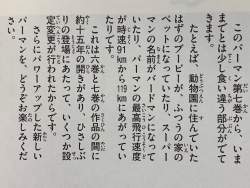 このパーマン第七巻から、いま
までとは少し食い違う部分がでて
きます。
たとえば、動物園に住んでいた
はずのブービーが、ふつうの家の
ペットになっていたり、スーパー
マンの名前がバードマンになって
いたり、パーマンの最高飛行速度
が時速91kmから119kmにあがってい
たりです。
これは六巻と七巻の作品の間に
約十五年の開きがあり、ひさしぶ
りの登場にあたって、いくつか設
定変更が行われたからです。
さらにパワーアップした新しい
パーマンを、どうぞお楽しみくだ
さい。